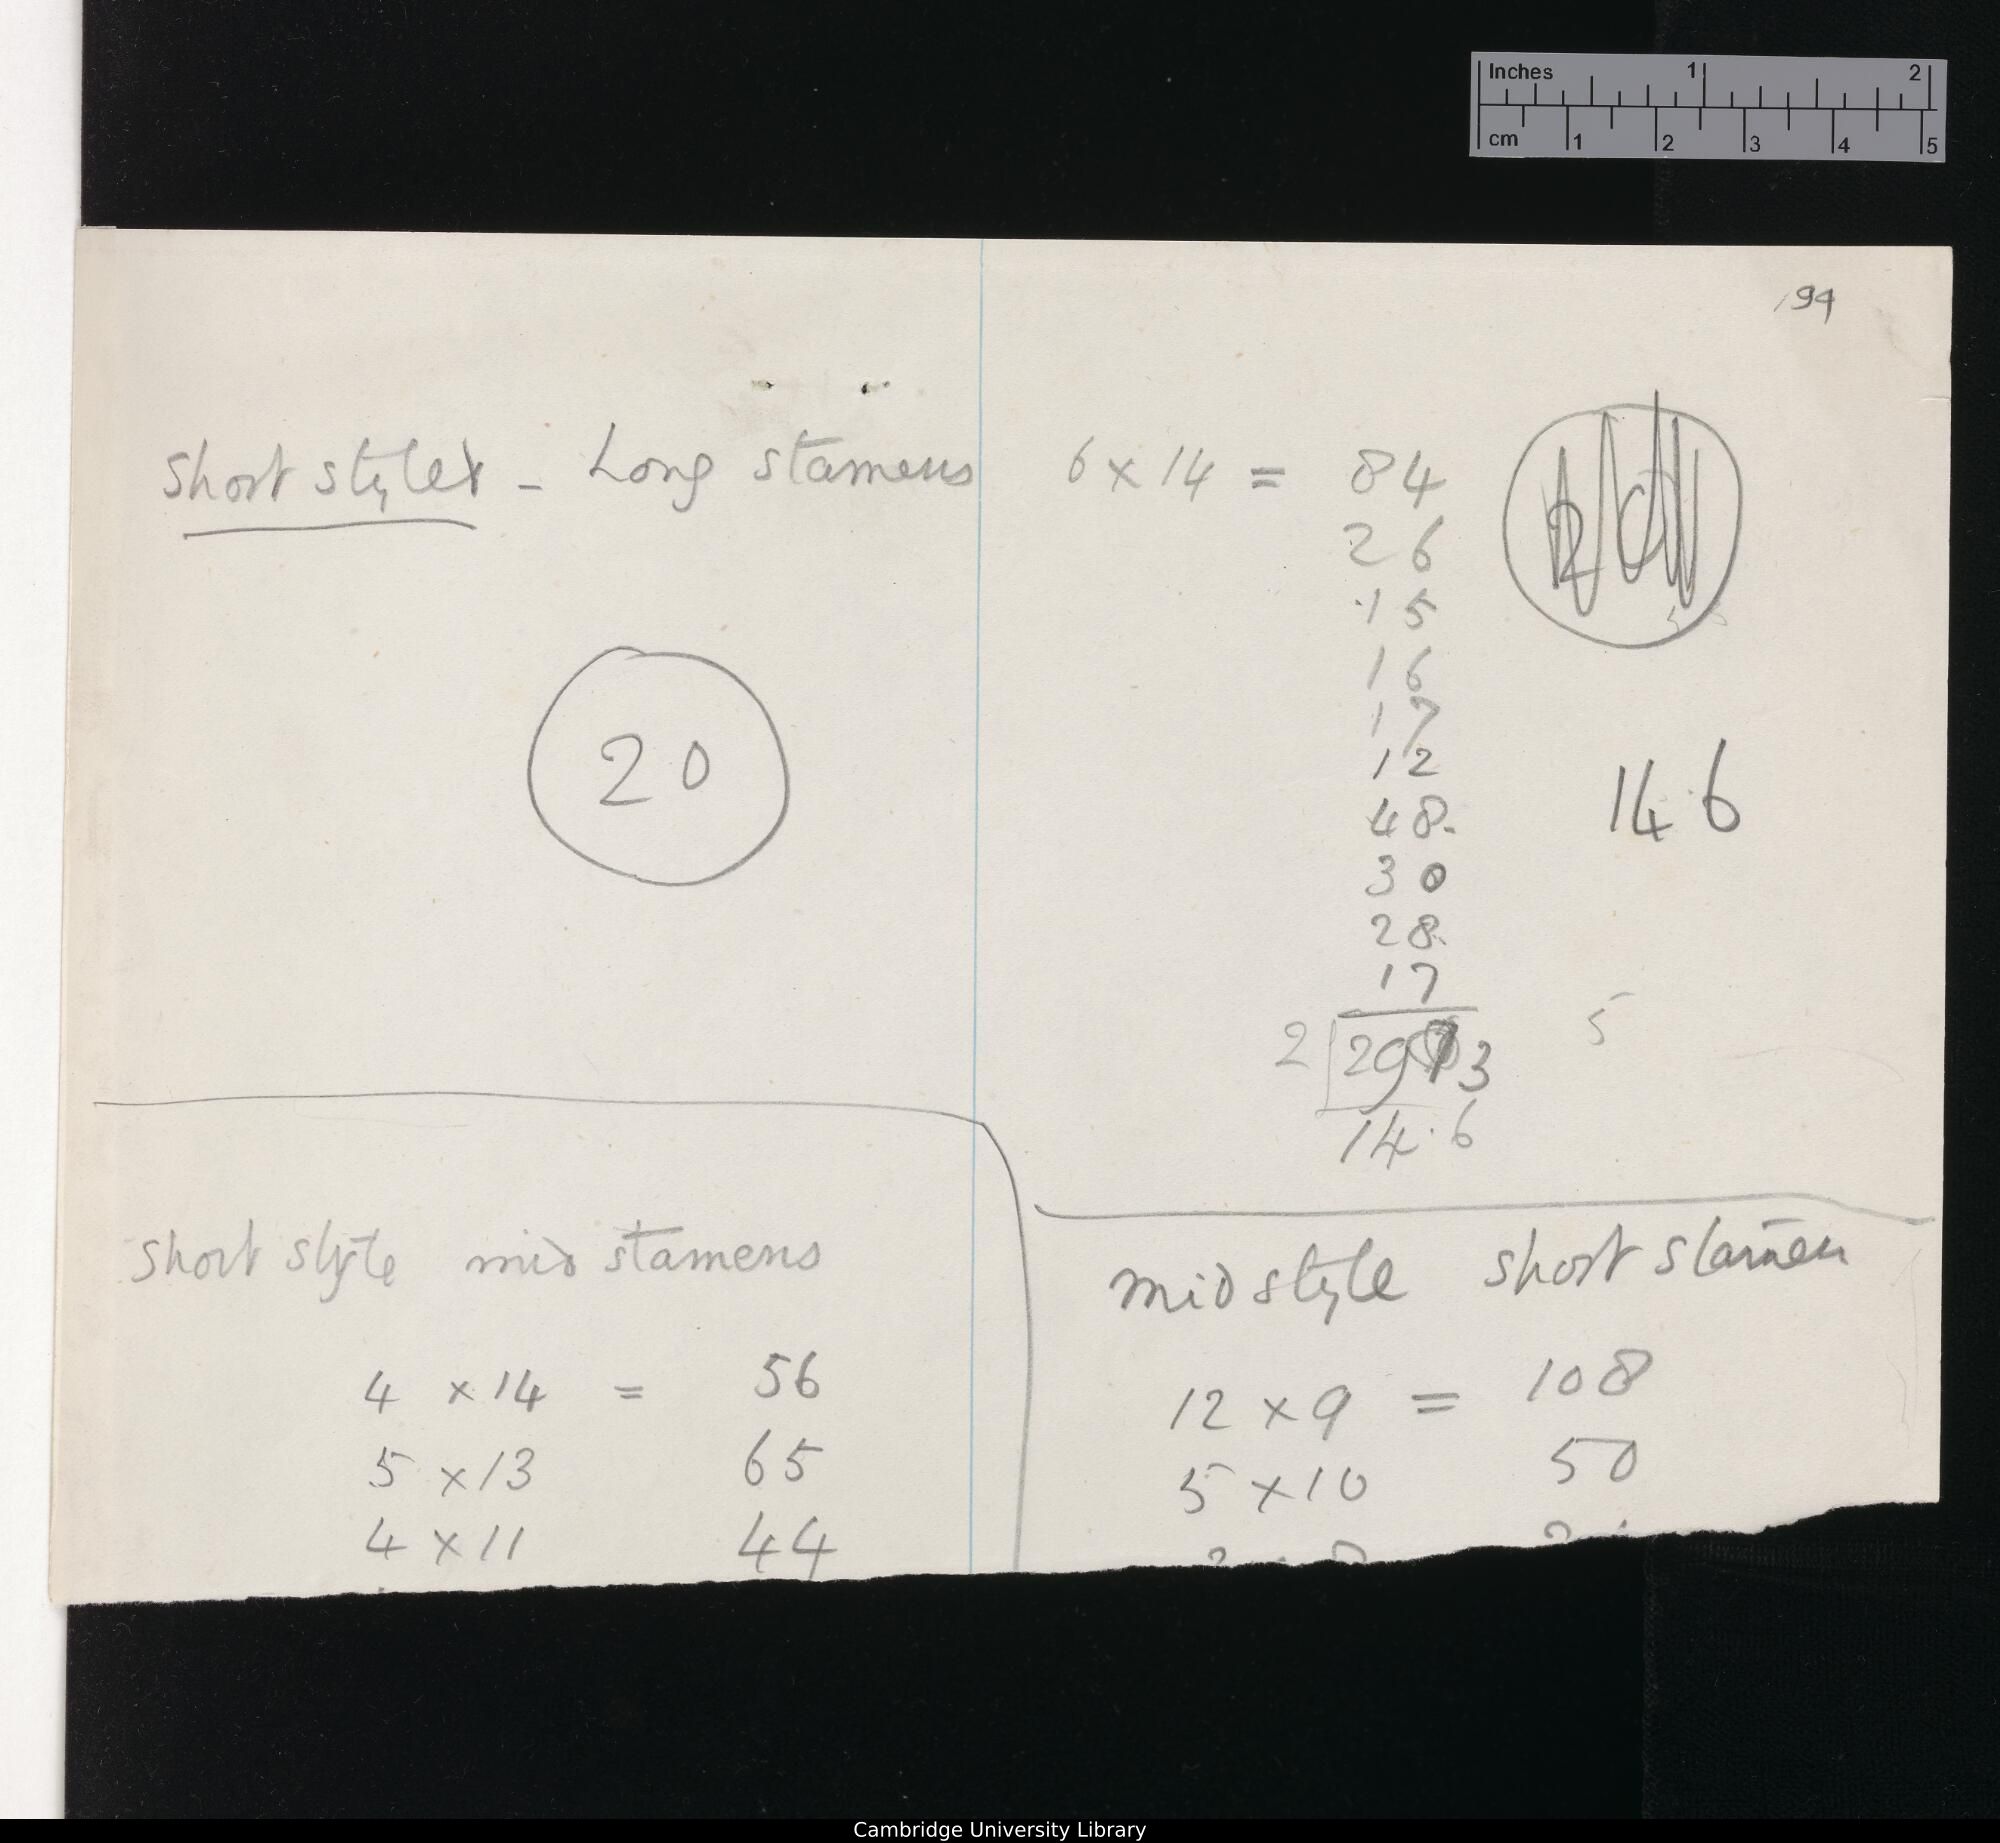 Inches 1 2
cm 1 2 3 4 5
194
Short style - Long stamens 6 x 14 = 84
26
15
16
17
20
12
48
14.6
30
28
17
5
2 293
14.6
Short style mid stamens
4 x 14 = 56
5 x 13 65
4 x 11 44
mid style short stamen
12 x 9 = 108
5 x 10 50
Cambridge University Library